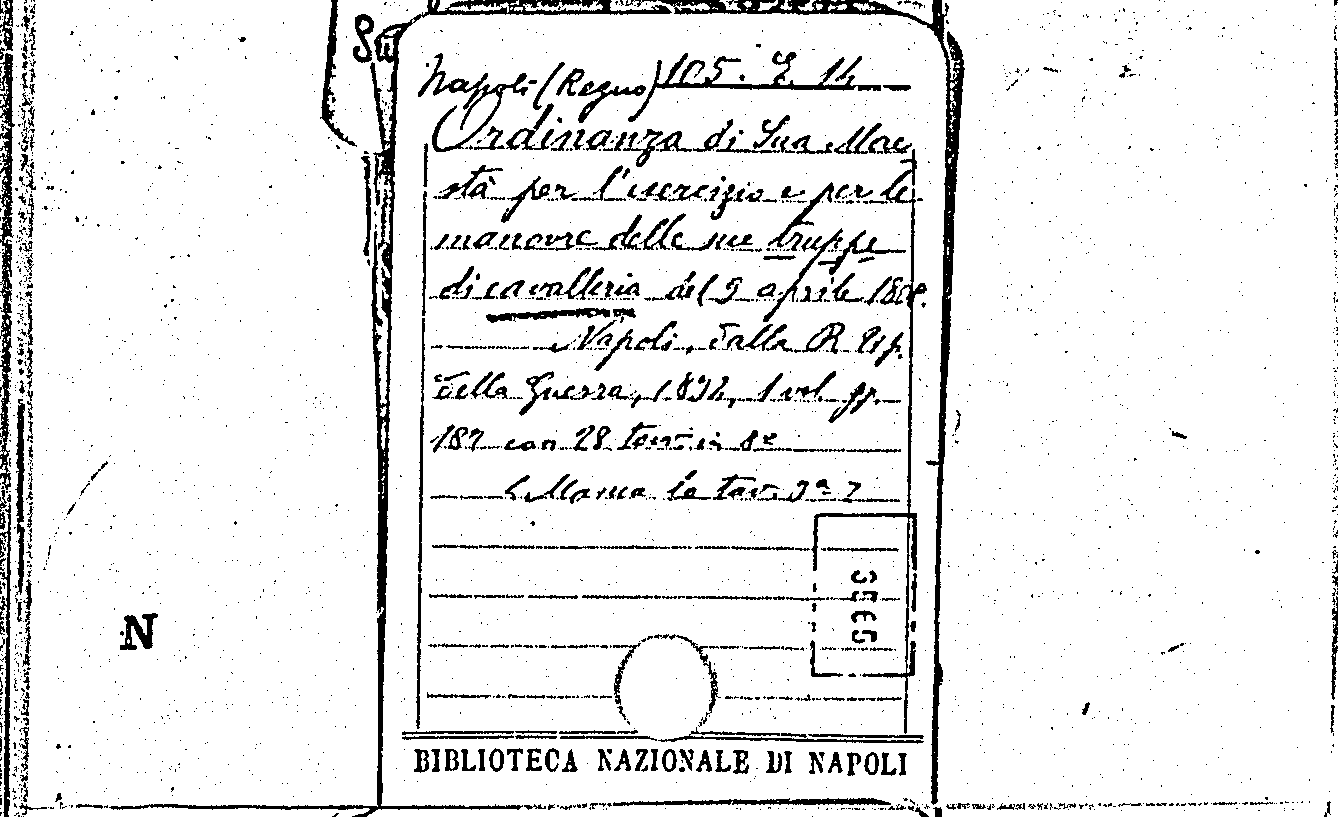 Su
Napoli (Regno) 105. E. 14
Ordinanza di Sua Mae
stà per l'esercizio e per le
manovre delle sue truppe
di cavalleria del 9 aprile
Napoli, dalla R.
della Guerra, 1 vol. pp.
187 con 28 tav. in 8°
Manca la tav.
N
BIBLIOTECA NAZIONALE DI NAPOLI